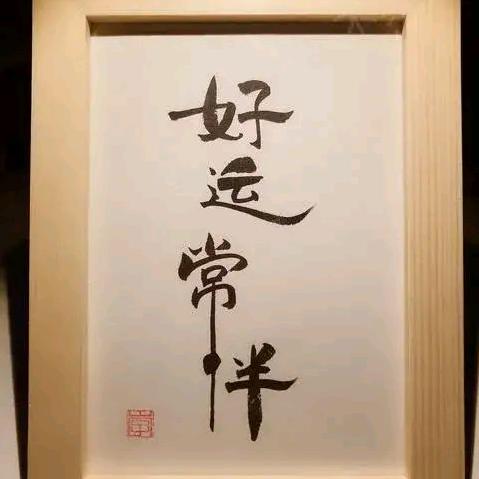 好运常伴